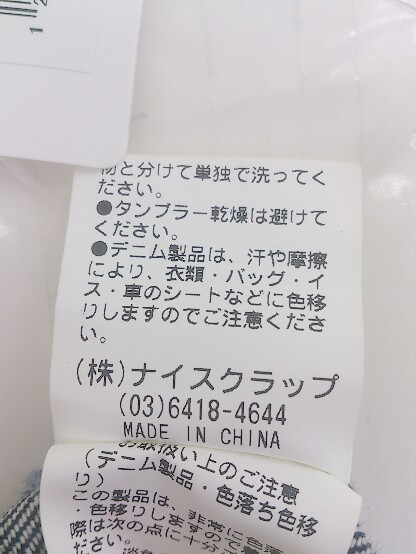 物と分けて単独で洗ってく
ださい。
●タンブラー乾燥は避けて
ください。
●デニム製品は、汗や摩擦
により、衣類・バッグ・イ
ス・車のシートなどに色移
りしますのでご注意くださ
い。
(株)ナイスクラップ
(03)6418-4644
MADE IN CHINA
お取扱い上のご注意
(デニム製品・色落ち色移
り)
この製品は、非常に色落
・色移りしますので
際は次の点に十分
ださい。